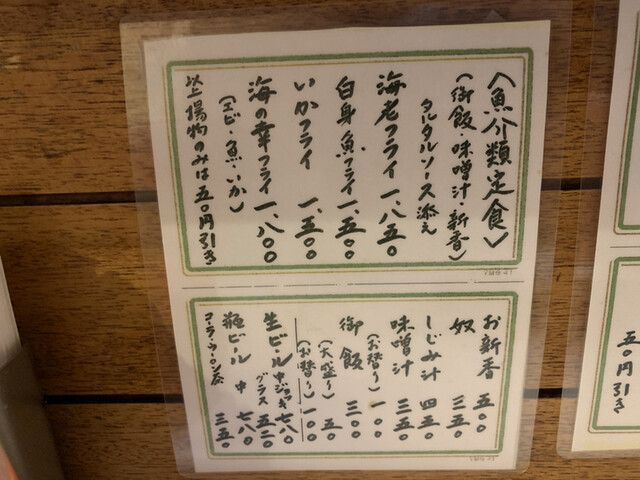 〈魚介類定食〉
(御飯・味噌汁・新香)
タルタルソース添え
海老フライ 一、八五〇
白身魚フライ 一、五〇〇
いかフライ 一、五〇〇
海の幸フライ 一、八〇〇
(エビ・魚・いか)
以上揚物のみは五〇円引き
お新香 五〇〇
奴 三五〇
しじみ汁 四五〇
味噌汁 三五〇
(お替り) 一〇〇
御飯 三〇〇
(大盛り) 五〇
(お替り) 一〇〇
生ビール 中ジョッキ 七八〇
グラス 五二〇
瓶ビール 中 七八〇
コーラ・ウーロン茶 三五〇
五〇円引き